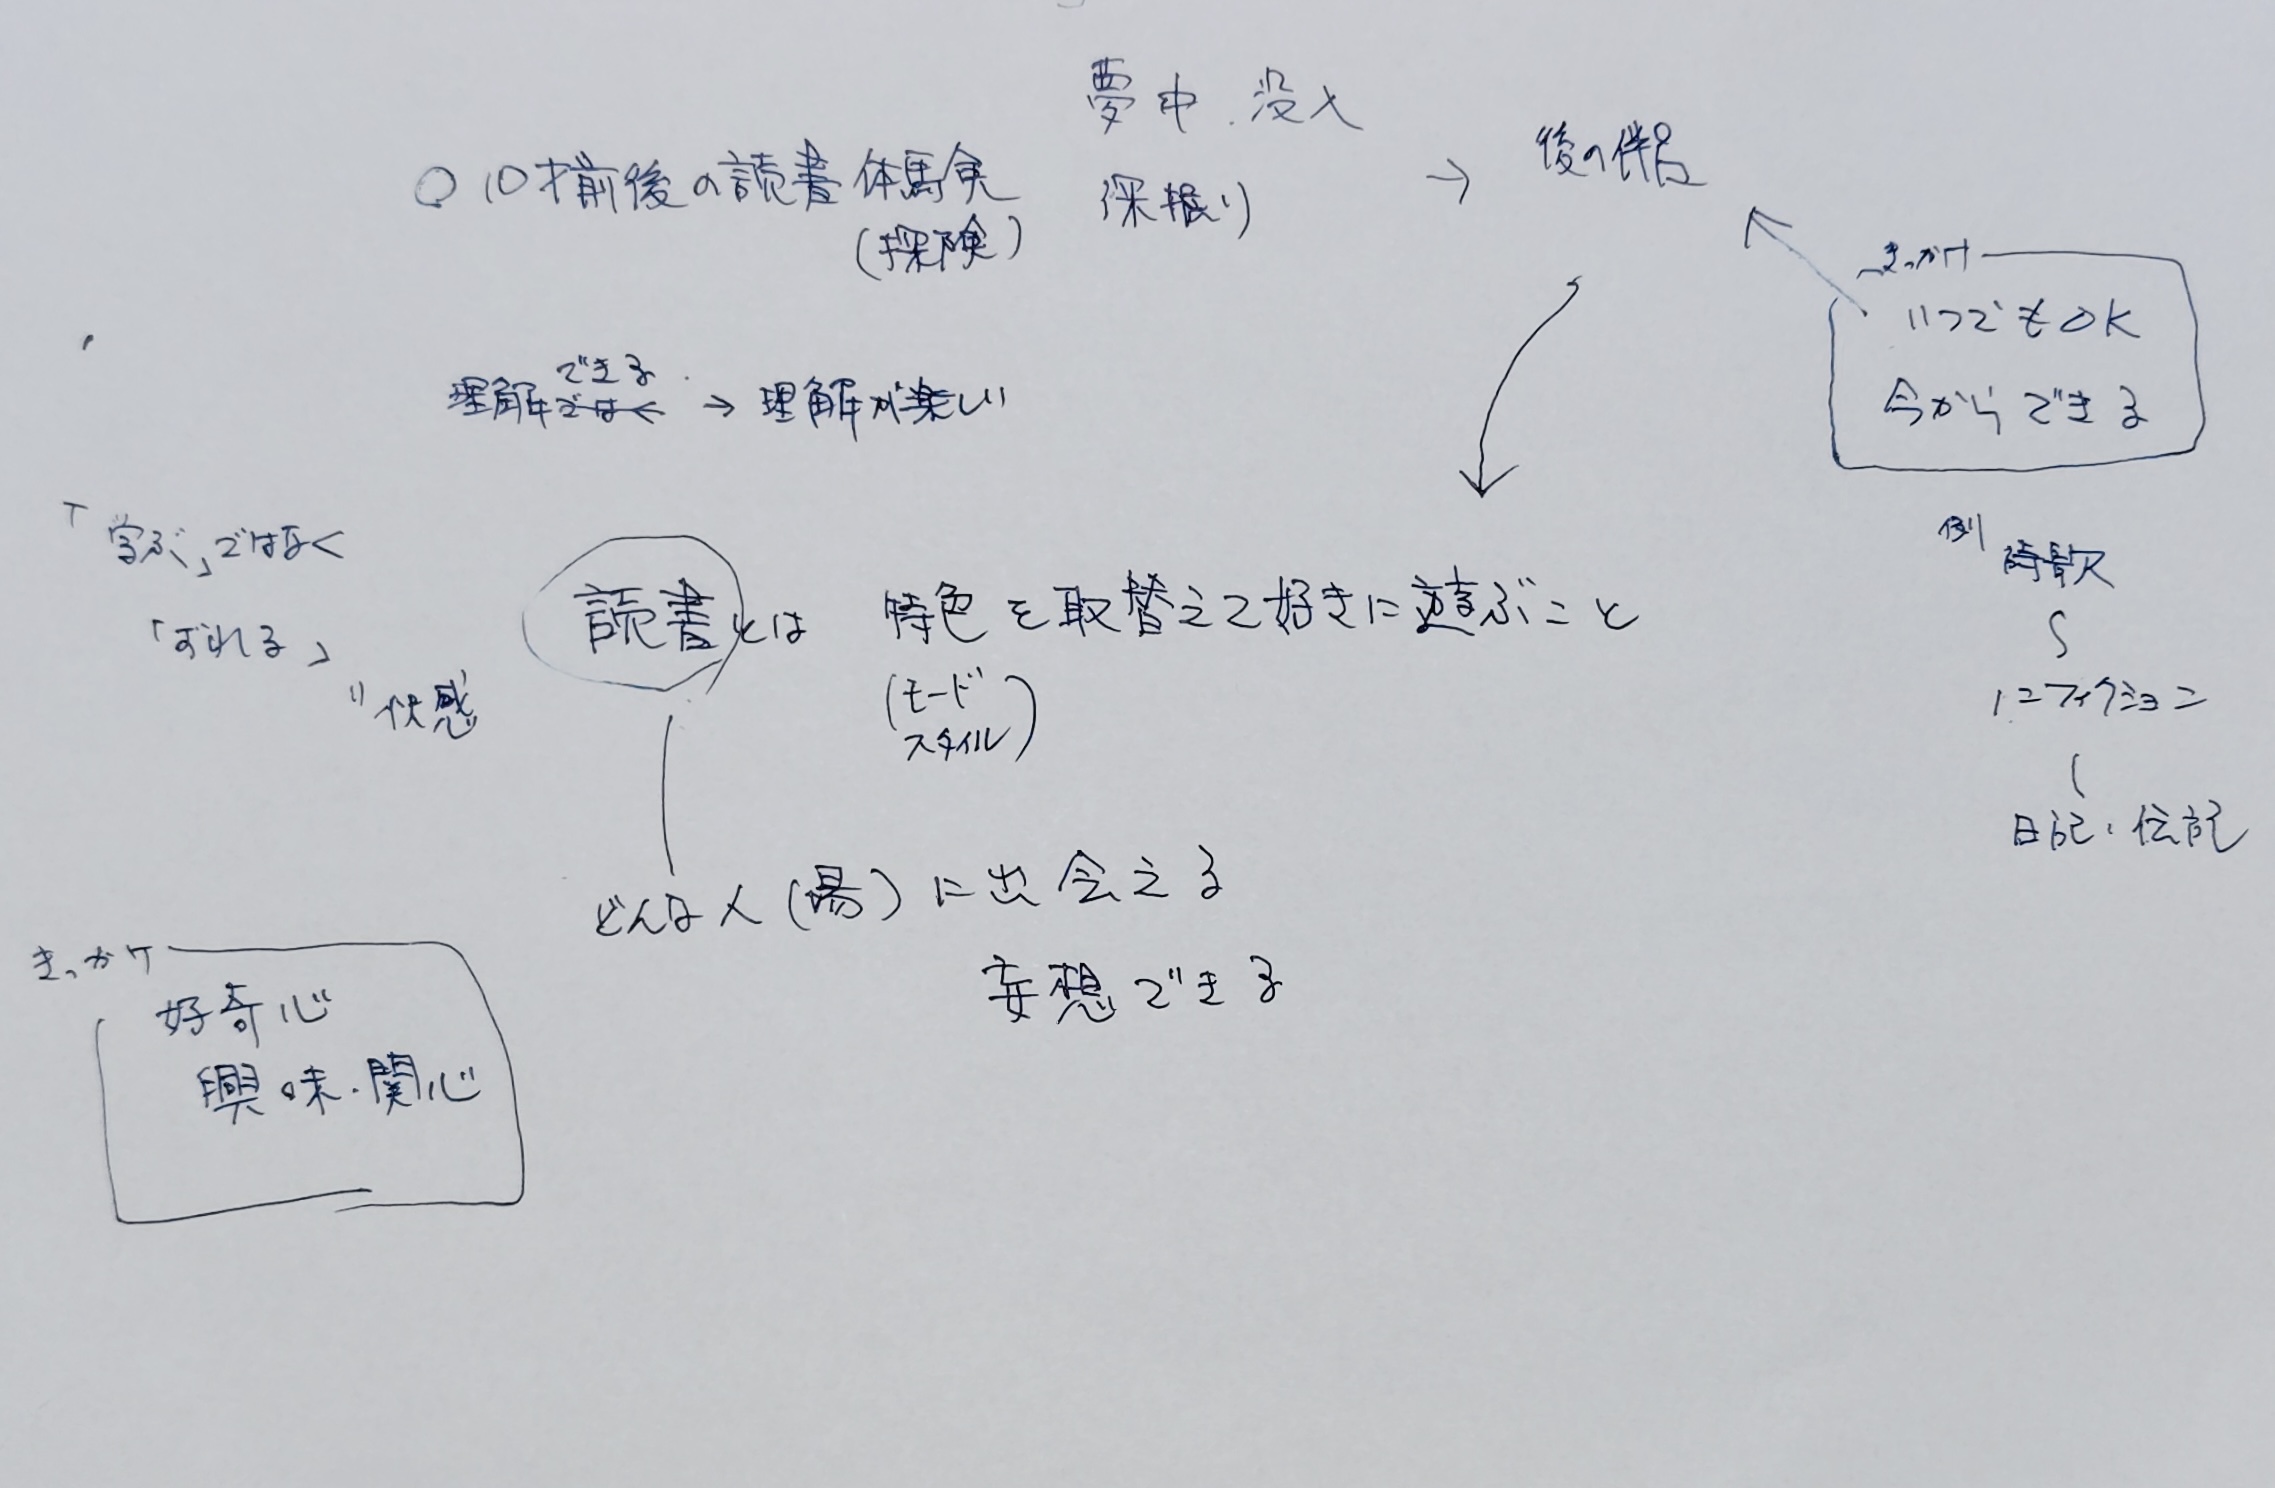 夢中.没入
○10才前後の読書体験
(探険)
深掘り
→ 後の伴侶
きっかけ
いつでもOK
今からできる
理解ではく できる → 理解が楽しい
「学ぶ」ではなく
「ずれる」
〃 快感
読書とは 特色を取替えて好きに遊ぶこと
(モード
スタイル)
例 詩歌
〜
ノンフィクション
〜
日記・伝記
どんな人(場)に出会える
妄想できる
きっかけ
好奇心
興味・関心